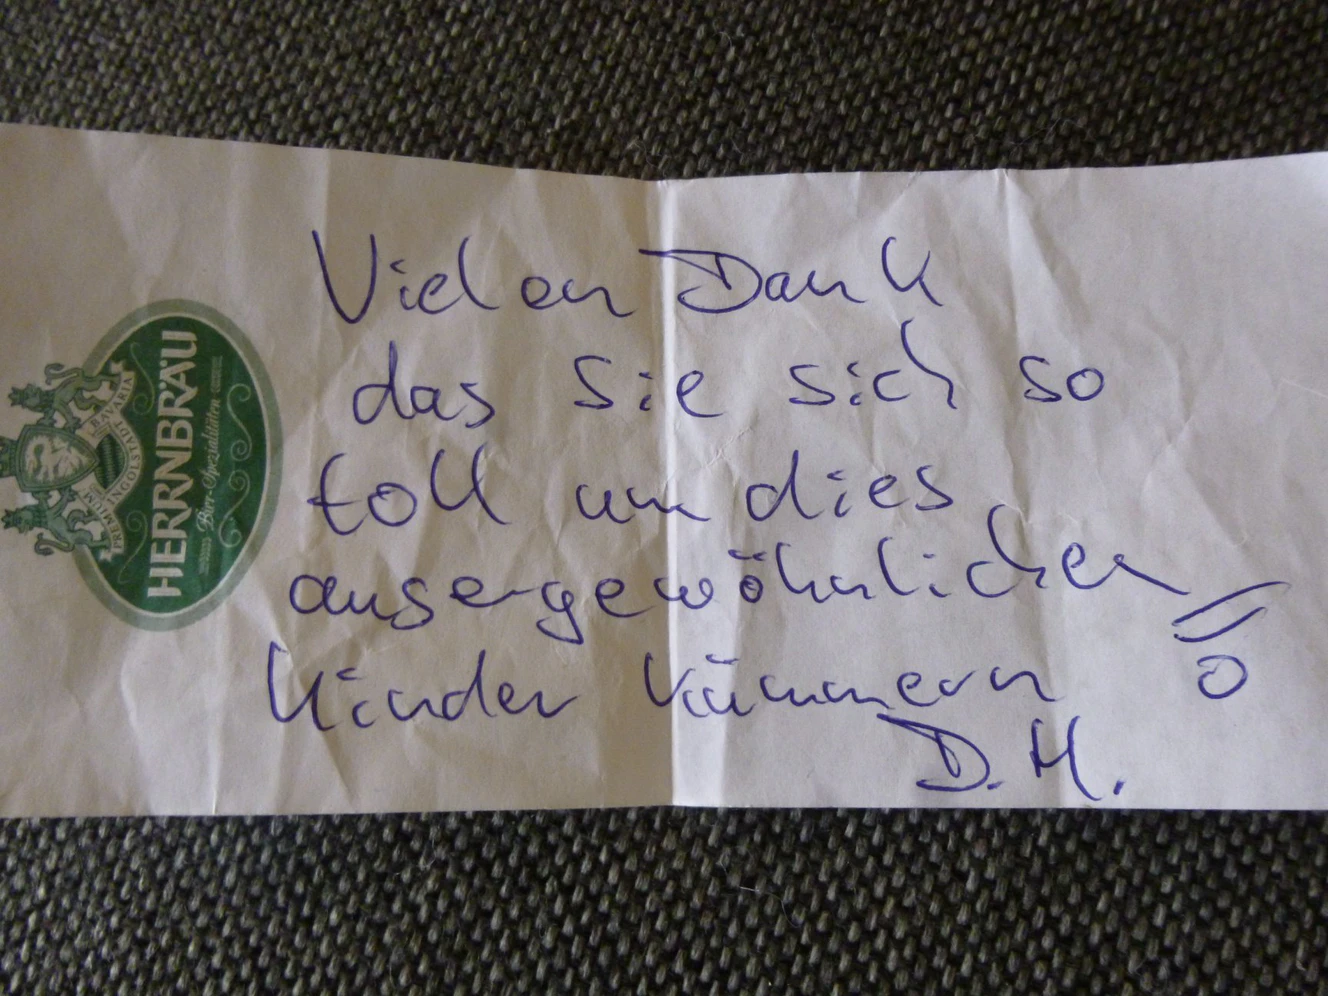 Vielen Dank
das Sie sich so
toll um dies
ausergewöhnlichen
Kinder kümmern !!
D.H.
HERRNBRÄU
Bier-Spezialitäten
PREMIUM
INGOLSTADT
BAVARIA